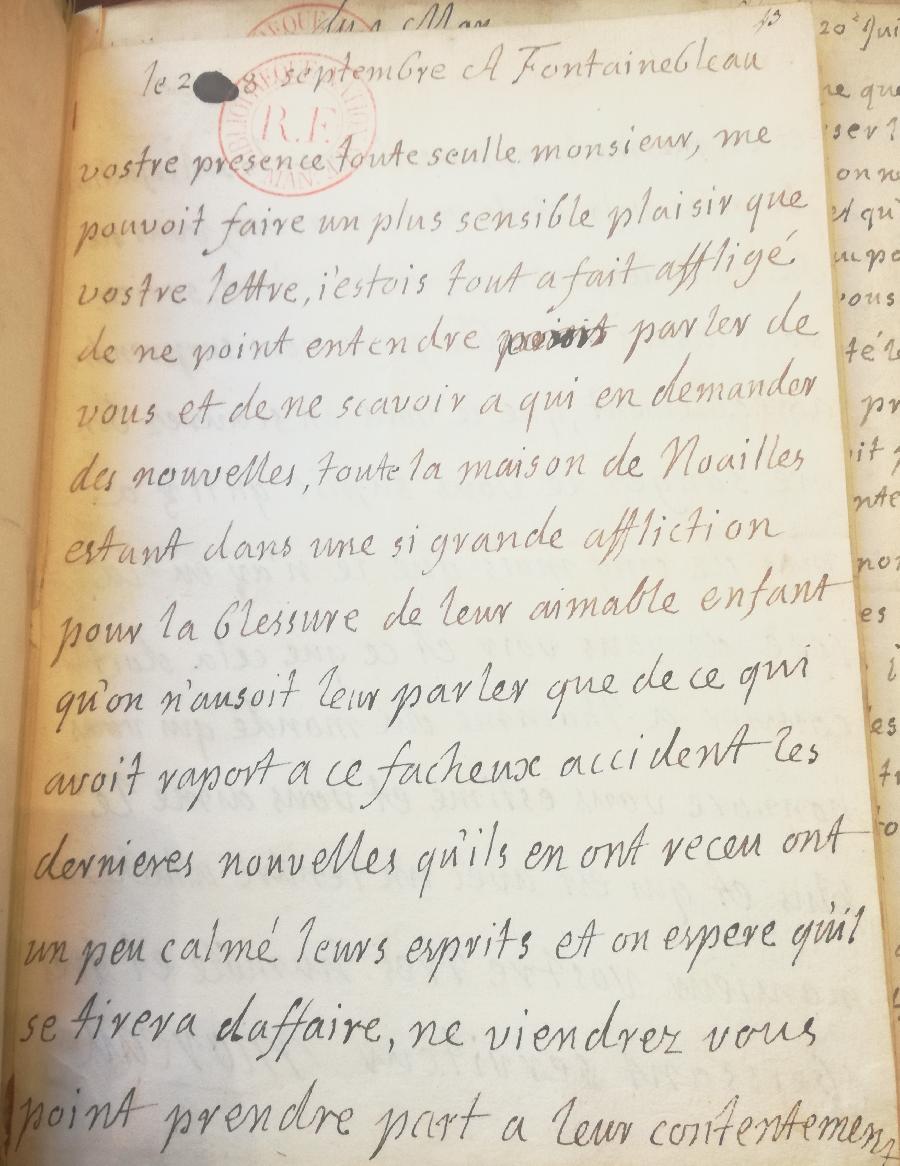 43
le 2 8 septembre A Fontainebleau
R.F.
MAN.
vostre presence toute seulle monsieur, me
pouvoit faire un plus sensible plaisir que
vostre lettre, i'estois tout a fait affligé
de ne point entendre parler de
vous et de ne scavoir a qui en demander
des nouvelles, toute la maison de Noailles
estant dans une si grande affliction
pour la blessure de leur aimable enfant
qu'on n'ausoit leur parler que de ce qui
avoit raport a ce facheux accident les
dernieres nouvelles qu'ils en ont receu ont
un peu calmé leurs esprits et on espere qu'il
se tirera daffaire, ne viendrez vous
point prendre part a leur contentement